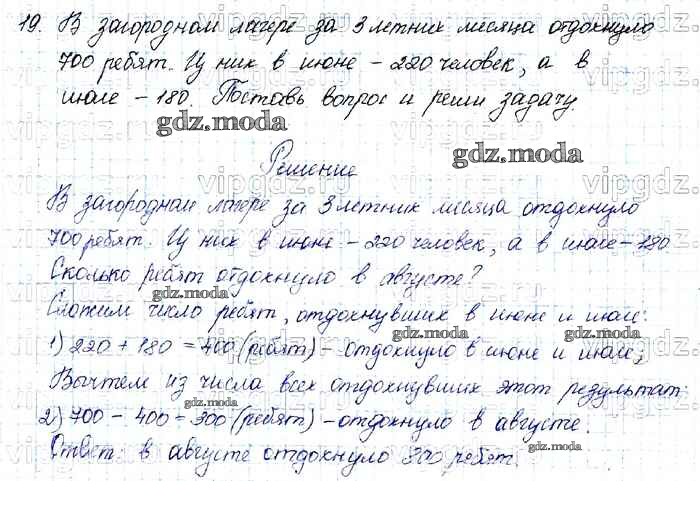 19. В загородном лагере за 3 летних месяца отдохнуло
700 ребят. Из них в июне – 220 человек, а в
июле – 180. Поставь вопрос и реши задачу.
gdz.moda
gdz.moda
Решение
В загородном лагере за 3 летних месяца отдохнуло
700 ребят. Из них в июне – 220 человек, а в июле – 180.
Сколько ребят отдохнуло в августе?
gdz.moda
Сложим число ребят, отдохнувших в июне и июле:
gdz.moda
gdz.moda
1) 220 + 180 = 400 (ребят) – отдохнуло в июне и июле;
Вычтем из числа всех отдохнувших этот результат
gdz.moda
2) 700 – 400 = 300 (ребят) – отдохнуло в августе.
gdz.moda
Ответ: в августе отдохнуло 300 ребят.
gdz.moda
vipgdz.ru